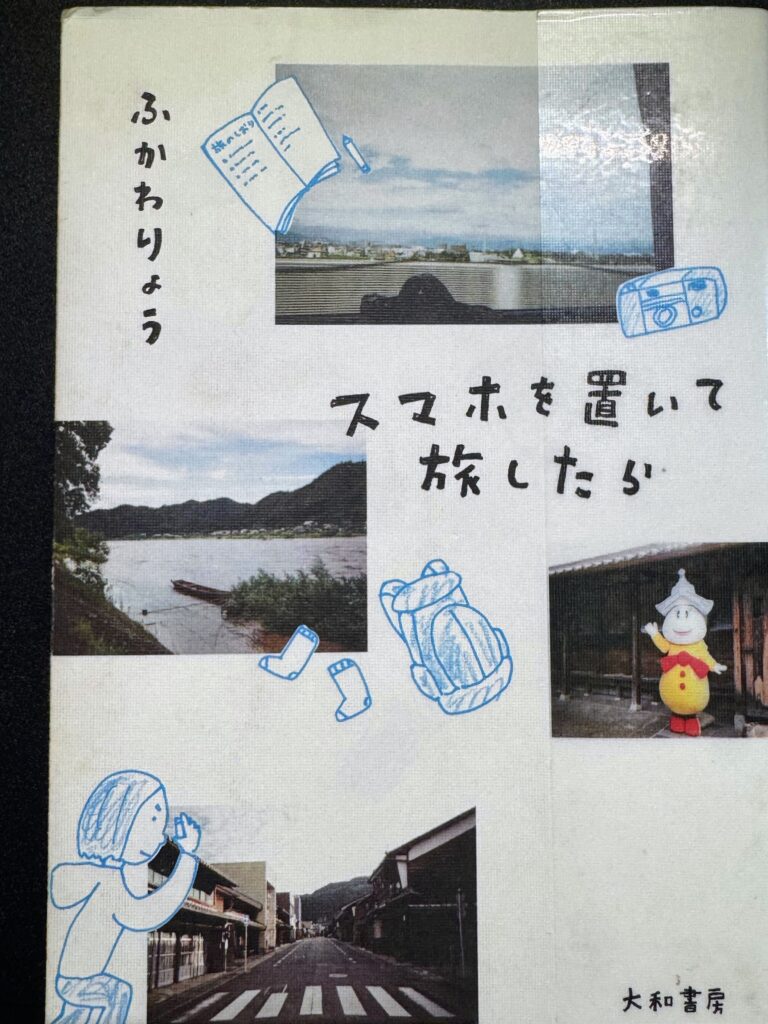 ふかわりょう
旅のしおり
スマホを置いて
旅したら
大和書房